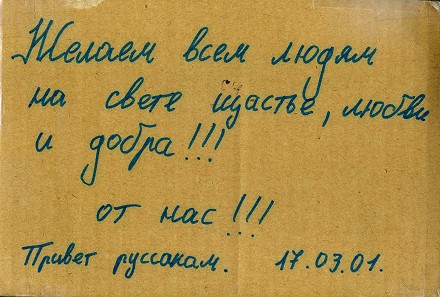 Желаем всем людям
на свете щастье, любви
и добра!!!
от нас!!!
Привет руссакам. 17.03.01.